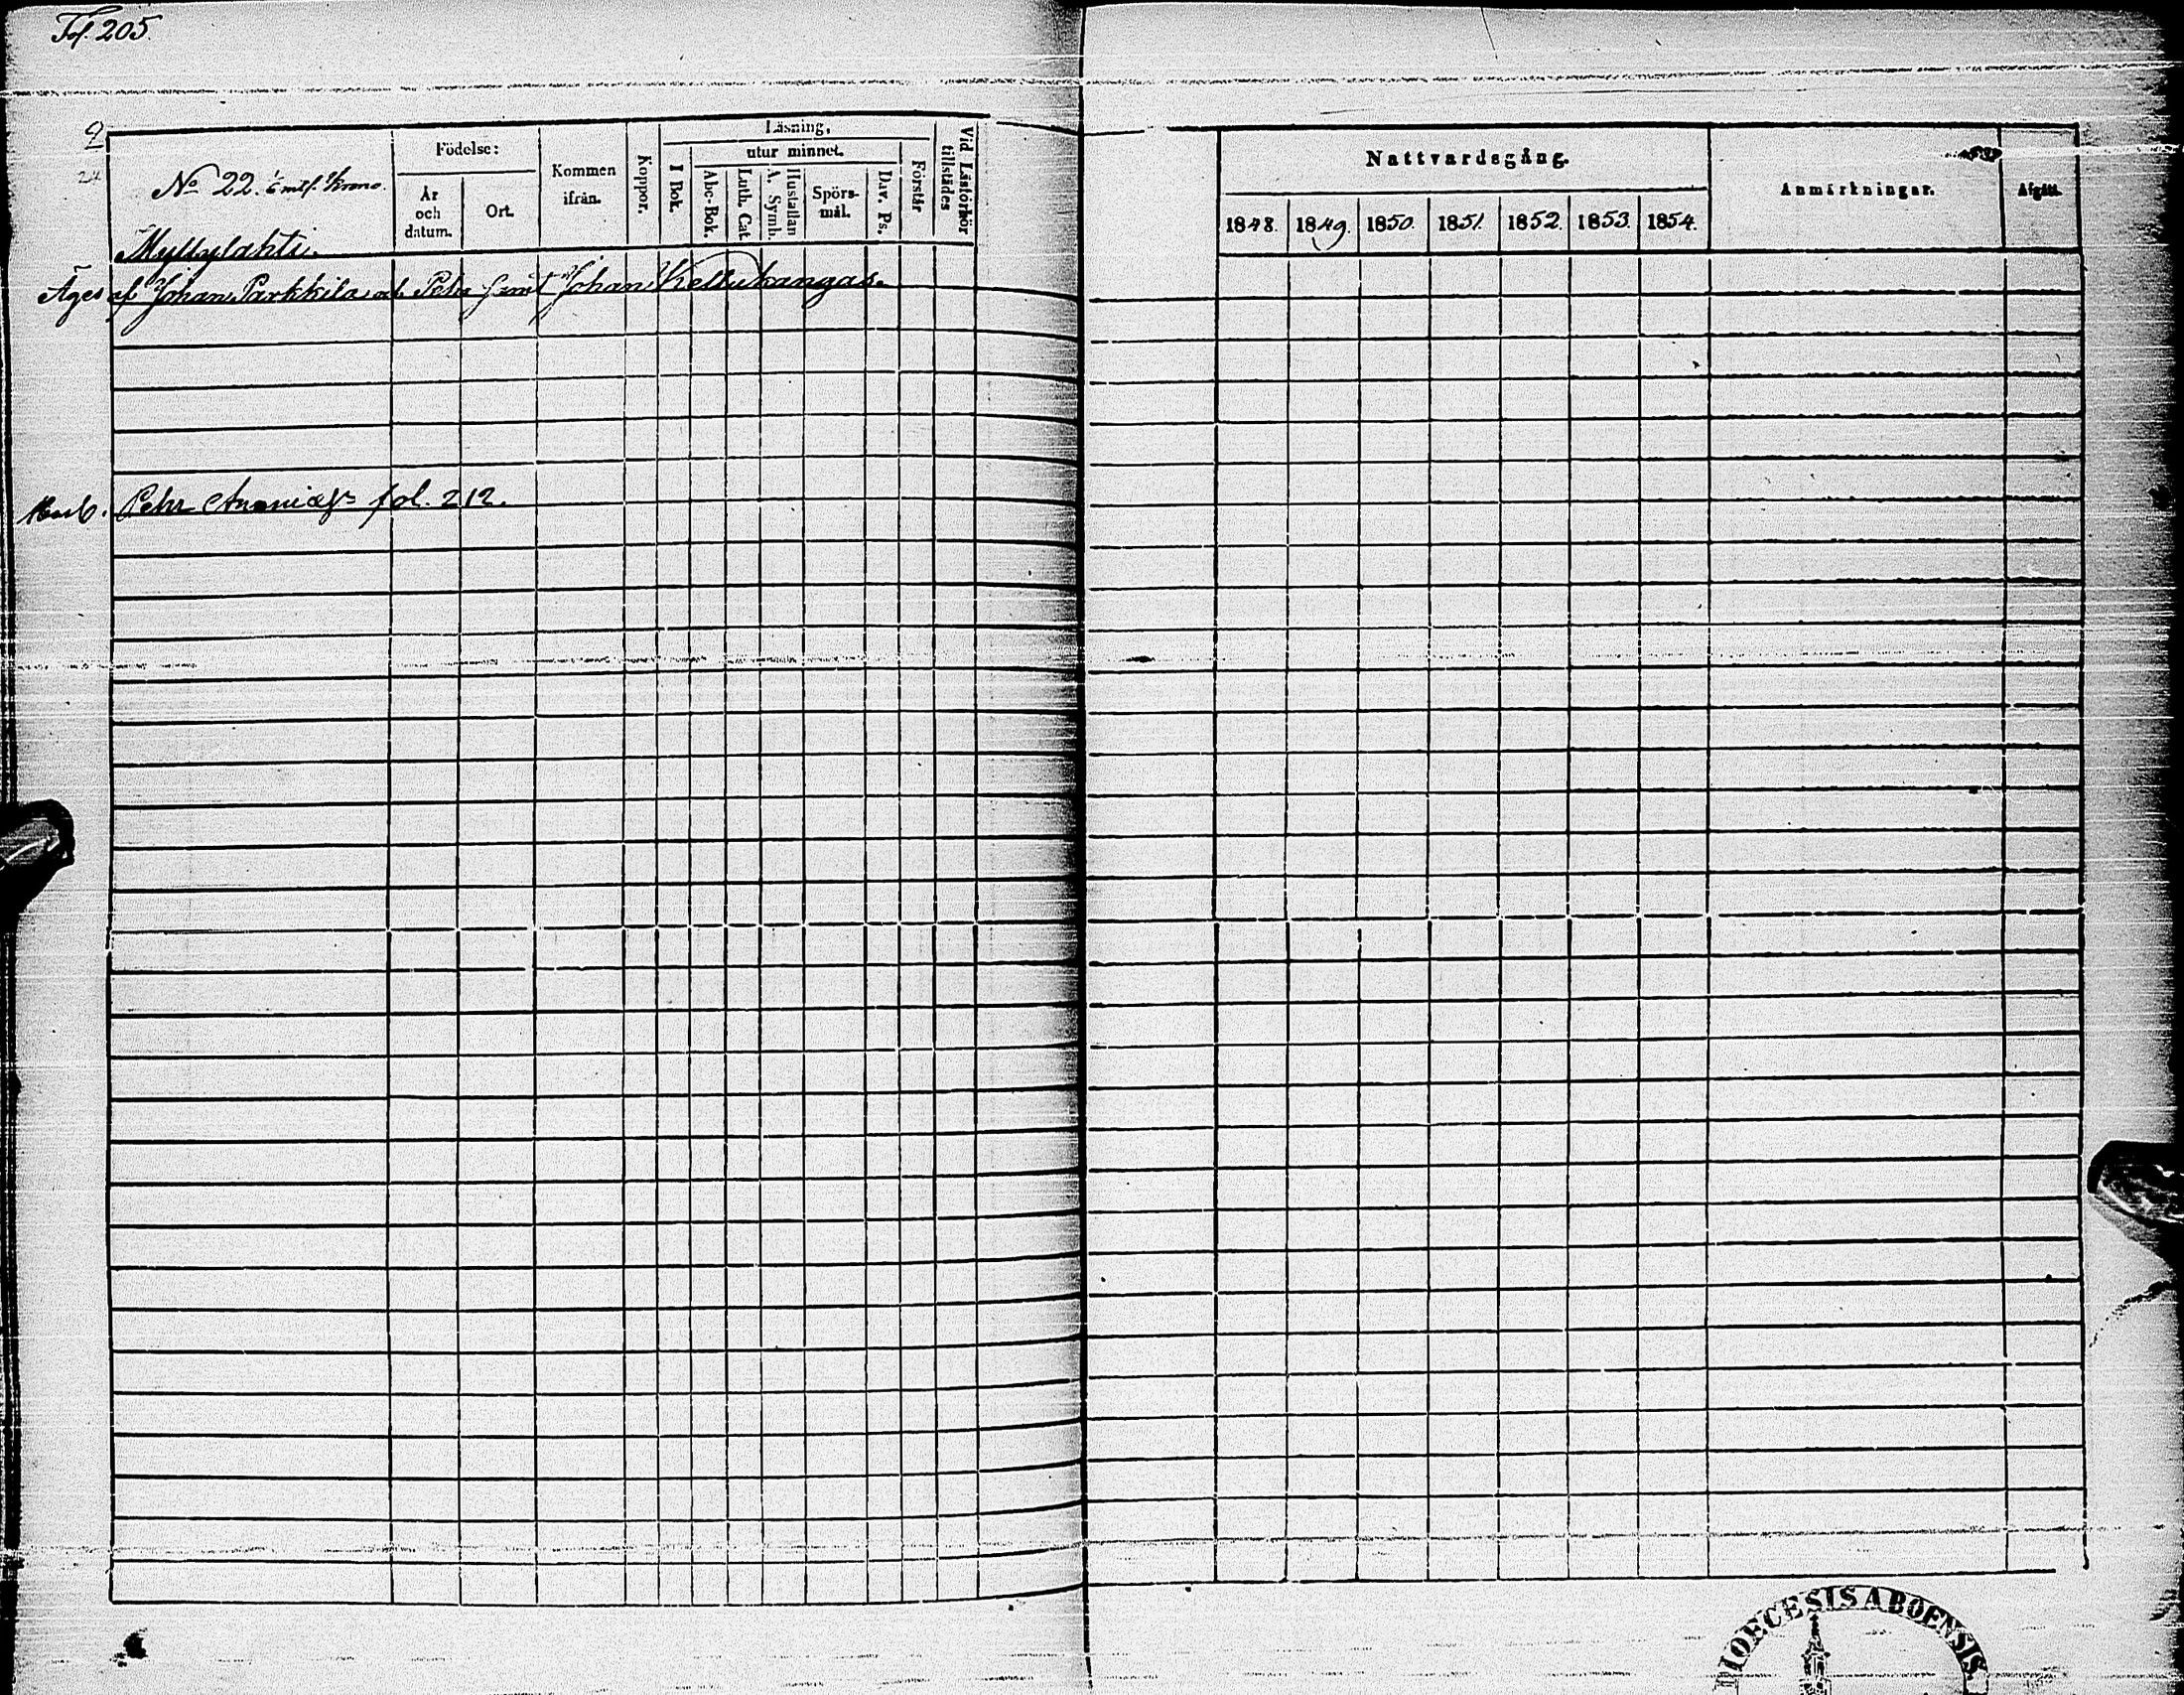 Fol. 205.
2
24
No 22. Krono.
Myllylahti.
Födelse:
År
och
datum.
Ort.
Kommen
ifrån.
Koppor.
Läsning,
I Bok.
utur minnet.
Abc-Bok.
Luth. Cat.
A. Symb.
Hustaflan
Spörs-
mål.
Dav. Ps.
Förstår
Vid Läsförhör
tillstädes
Nattvardsgång.
1848. 1849. 1850. 1851. 1852. 1853. 1854.
Anmärkningar.
Afgått.
Äges af Johan Parkkila och Pehr samt Johan Keltukangas.
Pehr Ananiæ fol. 212.
DIOECESIS ABOENSIS